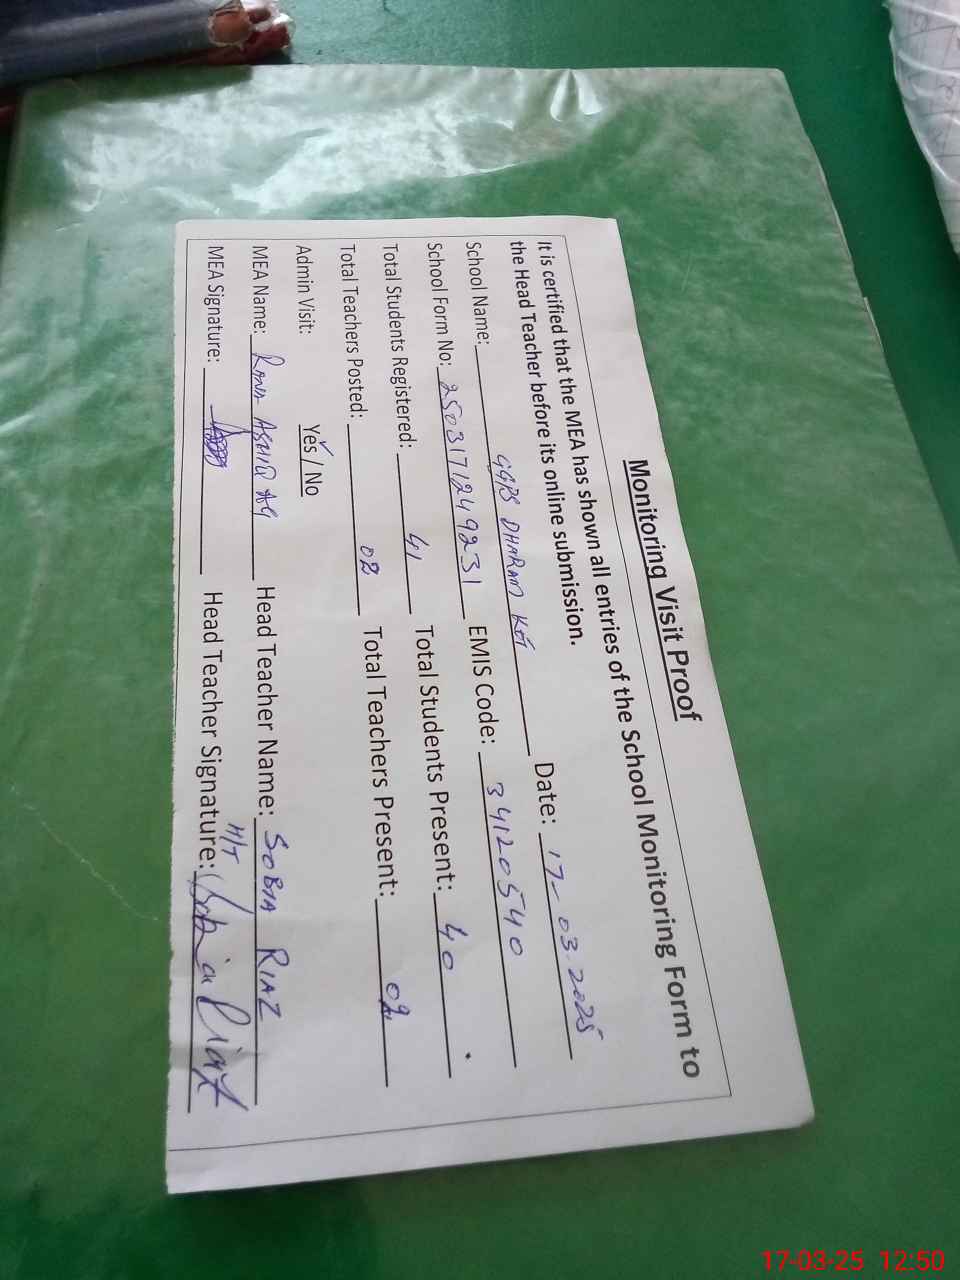 Monitoring Visit Proof
It is certified that the MEA has shown all entries of the School Monitoring Form to
the Head Teacher before its online submission.
School Name: GGPS DHARAM KOT Date: 17-03-2025
School Form No: 2503171249231 EMIS Code: 34120540
Total Students Registered: 41 Total Students Present: 40
Total Teachers Posted: 02 Total Teachers Present: 02
Admin Visit: Yes / No
MEA Name: RANA ASHIQ Head Teacher Name: SOBIA RIAZ
MEA Signature: Head Teacher Signature: Sobia Riaz
H/T
17-03-25 12:50